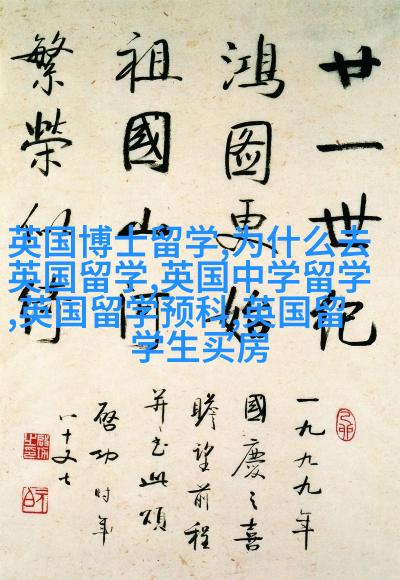 廿一世紀
鴻圖更始
祖國山河
繁榮
英国博士留学,为什么去
英国留学,英国中学留学
,英国留学预科,英国留
学生买房
一九九九年
國慶之喜
瞻望前程
并书此頌
啓功時年
八十又七